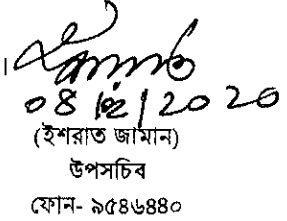 08/12/2020
(ইশরাত জামান)
উপসচিব
ফোন- ৯৫৪৬৪৪০